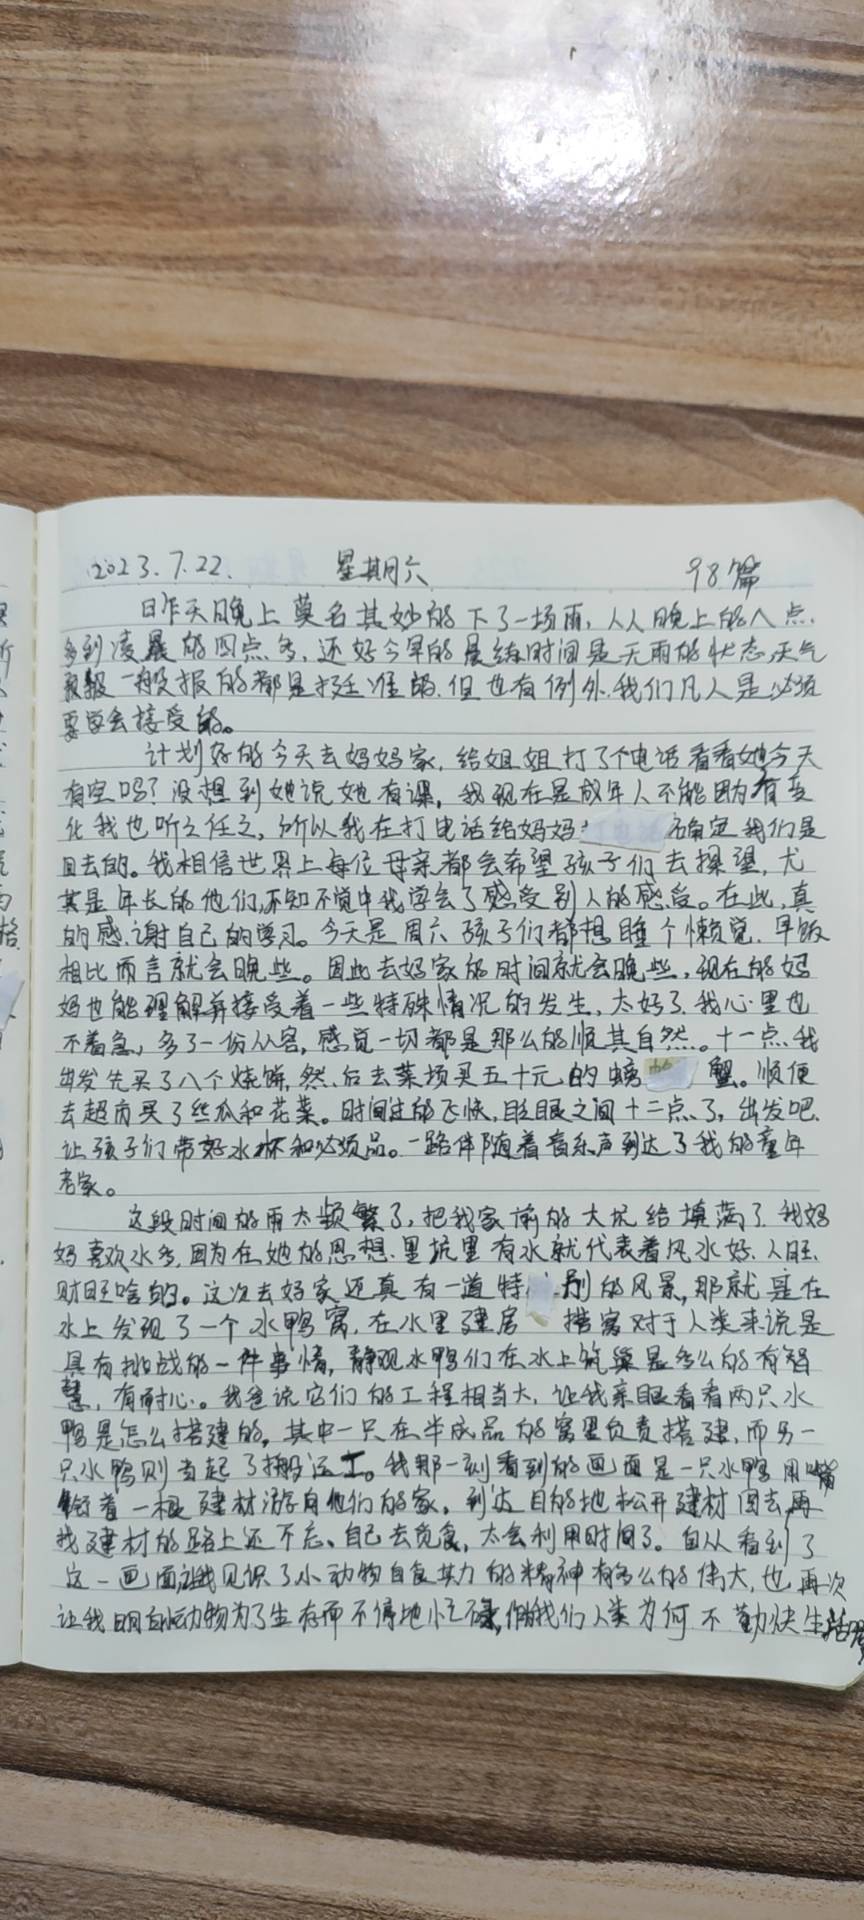 2023.7.22. 星期六 98篇
昨天晚上莫名其妙的下了一场雨,从晚上的八点
多到凌晨的四点多,还好今早的晨练时间是无雨的状态,天气
预报一般报的都是挺准的,但也有例外,我们凡人是必须
要学会接受的。
计划好的今天去妈妈家,给姐姐打了个电话看看她今天
有空吗?没想到她说她有课,我现在是成年人不能因为有变
化我也听之任之,所以我在打电话给妈妈 确定我们是
回去的。我相信世界上每位母亲都会希望孩子们去探望,尤
其是年长的他们,不知不觉中我学会了感受别人的感受。在此,真
的感谢自己的学习。今天是周六孩子们都想睡个懒觉,早饭
相比而言就会晚些。因此去妈家的时间就会晚些,现在的妈
妈也能理解并接受着一些特殊情况的发生,太好了,我心里也
不着急,多了一份从容,感觉一切都是那么的顺其自然。十一点,我
出发先买了八个烧饼,然后去菜场买五十元的螃蟹。顺便
去超市买了丝瓜和花菜。时间过的飞快,眨眼之间十二点了,出发吧,
让孩子们带好水杯和必须品。一路伴随着音乐声到达了我的童年
老家。
这段时间的雨太频繁了,把我家前的大坑给填满了,我妈
妈喜欢水多,因为在她的思想里坑里有水就代表着风水好,人旺,
财旺啥的。这次去妈家还真有一道特别的风景,那就是在
水上发现了一个水鸭窝,在水里建房 搭窝对于人类来说是
具有挑战的一件事情,静观水鸭们在水上筑巢是多么的有智
慧,有耐心。我爸说它们的工程相当大,让我亲眼看看两只水
鸭是怎么搭建的,其中一只在半成品的窝里负责搭建,而另一
只水鸭则当起了搬运工。我那一刻看到的画面是一只水鸭用嘴
衔着一根建材游向他们的家,到达目的地松开建材回去再
找建材的路上还不忘自己去觅食,太会利用时间了。自从看到了
这一画面,让我见识了小动物自食其力的精神有多么的伟大,也再次
让我明白动物为了生存而不停地忙碌,我们人类为何不勤快生活